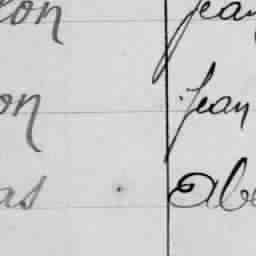 lon Jean
on Jean
as Abe